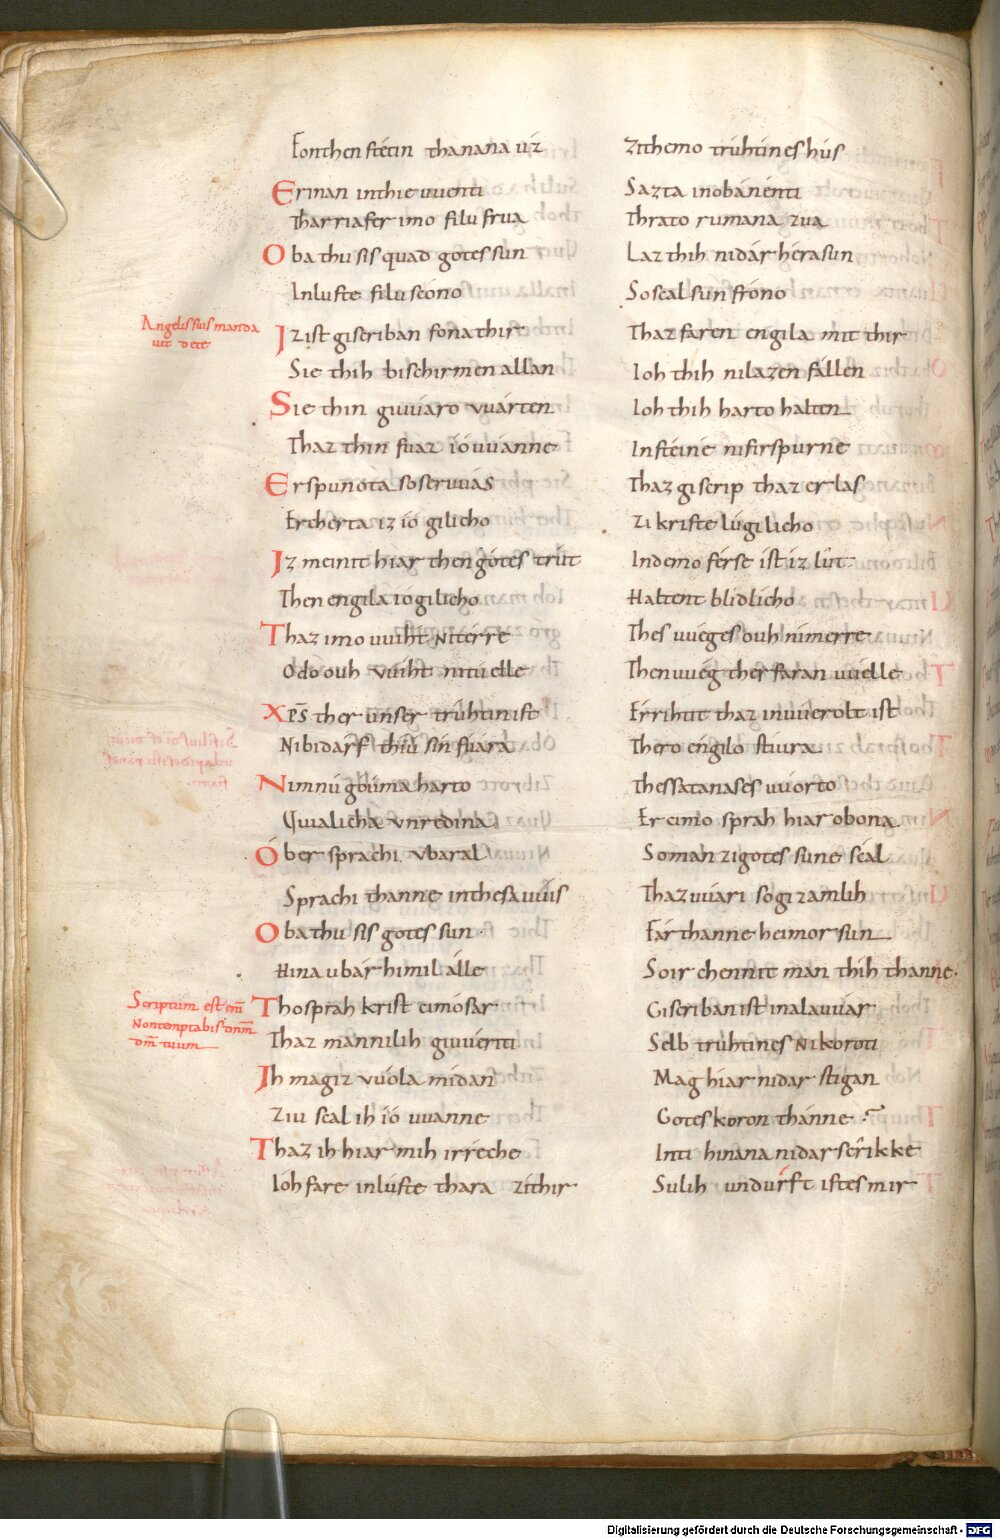 Fonthen stétin thanana úz zithemo trúhtines hús
Er inan inthie uuenti Sazta inobanénti
Thar riafer imo filu frua Thrato rumana zua
Oba thu sis quad gótes sun Laz thih nidár hérasun
Inlufte filu scóno So scal sun fróno
Angelis suis manda
uit de te
Iz ist giscriban fona thir Thaz faren engila mit thir
Sie thih bischirmen allan Ioh thih nilazen fállen
Sie thin giuuáro vuárten Ioh thih harto halten
Thaz thin fuaz ió uuanne Insteine nifirspurne
Er spunóta so ser uuás Thaz giscrip thaz er las
Ercherta iz ió gilicho zi kriste lúgilicho
Iz meinit hiar then gótes trút Indemo férse ist iz lút
Then engila ió gilicho Haltent blidlicho
Thaz imo uuiht Nitérre Thes uuéges ouh nimerre
Odo ouh vuiht nituélle Then uuég ther faran uuélle
Xps ther únser trúhtin ist Errihtit thaz inuuerolt ist
Nibidárf thiu sin fuara Thero éngilo stiura
Nimnú góuma harto Thes satanases uuorto
Quialicha vnredina Er cimo sprah hiar obona
Ober sprachi vbaral Soman zi gotes sune scál
Sprachi thanne inthesa uuis Thaz uuári sogizamlih
Oba thu sis gotes sun Fár thanne heimor sun
Hina ubár himil alle So ir chennit man thih thanne
Scriptum est eni
Non temptabis dnm
dm tuum
Tho sprah krist cimo sar Giscriban ist inalauuár
Thaz mannilih giuuerti Selb truhtines Nikoroti
Ih mag iz vuola midan Mag hiar nidar stigan
Ziu scal ih ió uuanne Gotes koron thánne
Thaz ih hiar mih irreche Inti hinana nidar scrikke
Ioh fare inlúfte thara zithir Sulih undúrft ist es mir
Digitalisierung gefördert durch die Deutsche Forschungsgemeinschaft - DFG